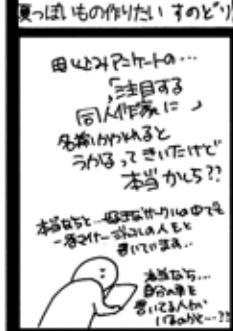 夏っぽいもの作りたい すのどり
申し込みアンケートの…
「注目する
同人作家に」
名前いわれると
うかるってきいたけど
本当かしら??
本当なら…好きなサークルの中でも
一番マイナー
の人を
書いています…
本当なら…
自分の事を
書いてる人が
いるのかと…??